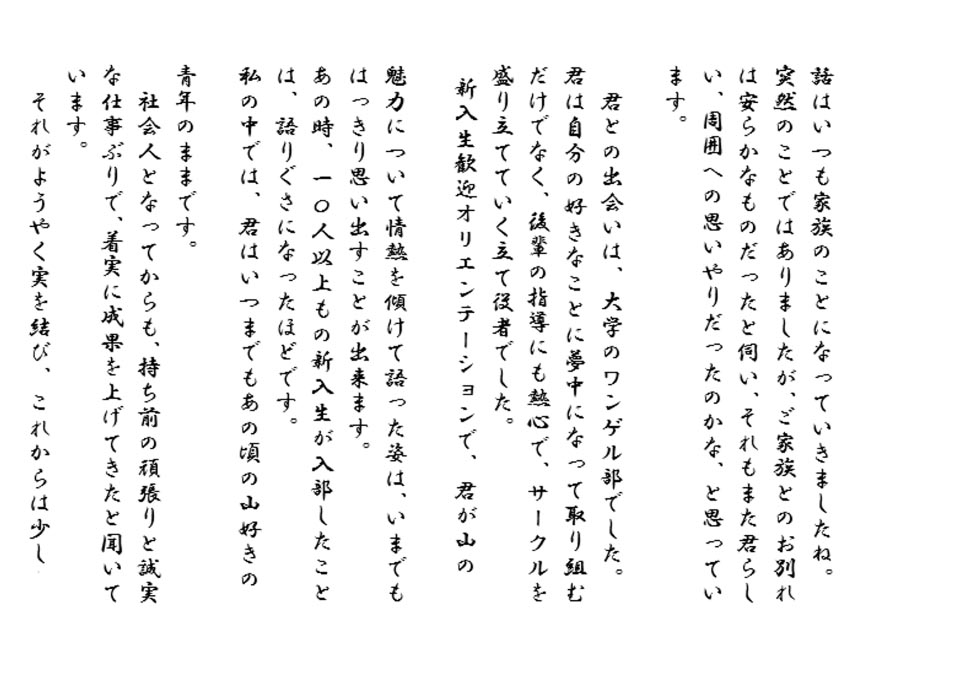 話はいつも家族のことになっていきましたね。
突然のことではありましたが、ご家族とのお別れ
は安らかなものだったと伺い、それもまた君らし
い、周囲への思いやりだったのかな、と思ってい
ます。
君との出会いは、大学のワンゲル部でした。
君は自分の好きなことに夢中になって取り組む
だけでなく、後輩の指導にも熱心で、サークルを
盛り立てていく立て役者でした。
新入生歓迎オリエンテーションで、君が山の
魅力について情熱を傾けて語った姿は、いまでも
はっきり思い出すことが出来ます。
あの時、一〇人以上もの新入生が入部したこと
は、語りぐさになったほどです。
私の中では、君はいつまでもあの頃の山好きの
青年のままです。
社会人となってからも、持ち前の頑張りと誠実
な仕事ぶりで、着実に成果を上げてきたと聞いて
います。
それがようやく実を結び、これからは少し